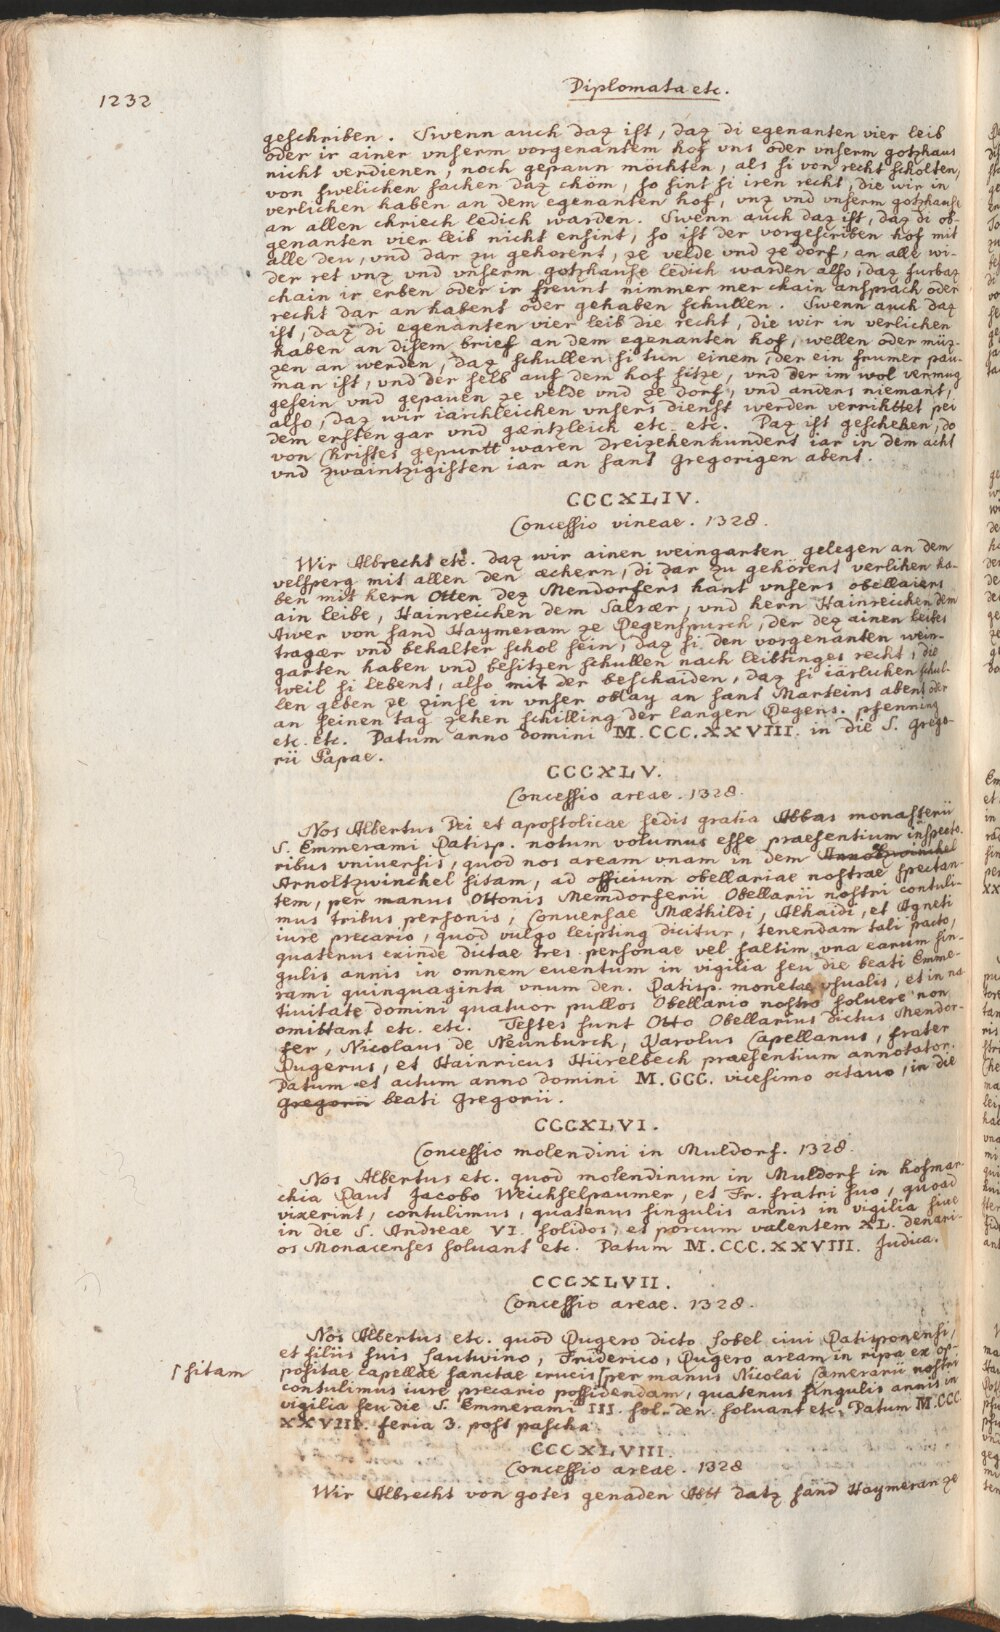 1232
Diplomata etc.
geschriben. Swenn auch daz ist, daz di egenanten vier leib
oder ir ainer vnserm vorgenantem hof vns oder vnserm gotzhaus
nicht verdienen, noch gepaun möchten, als si von recht scholten,
von swelichen sachen daz chöm, so sint si iren recht, die wir in
verlichen haben an dem egenanten hof, vnz vnd vnserm gotzhause
an allen chriech ledich warden. Swenn auch daz ist, daz di ob-
genanten vier leib nicht ensint, so ist der vorgescriben hof mit
alle deu, vnd dar zu gehorent, ze velde vnd ze dorf, an alle wi-
der ret vnz vnd vnserm gotzhause ledich warden also, daz furbaz
chain ir erben oder ir freunt nimmer mer chain ansprach oder
recht dar an habent oder gehaben schullen. Swenn auch daz
ist, daz di egenanten vier leib die recht, die wir in verlichen
haben an disem brief an dem egenanten hof, wellen oder müz-
zen an werden, daz schullen si tun einem, der ein frumer pau-
man ist, vnd der selb auf dem hof sitze, vnd der im wol vermug
gesein vnd gepauen ze velde vnd ze dorf, vnd anders niemant,
also, daz wir iarichleichen vnsers dienst werden verrihttet pei
dem ersten gar vnd gæntzleich etc. etc. Daz ist geschehen, do
von Christes gepurtt waren dreizehenhundert iar in dem acht
vnd zwaintzigisten iar an sant Gregorigen abent.
CCCXLIV.
Concessio vineae. 1328.
Wir Albrecht etc. daz wir ainen weingarten gelegen an dem
velsperg mit allen den æchern, di dar zu gehörent verlihen ha-
ben mit hern Otten dez Mendorfers hant vnsers obellaiers
ain leibe, Hainreichen dem Salrær, vnd hern Hainreichen dem
Awer von sand Haymeram ze Regenspurch, der dez ainen leibes
tragær vnd behalter schol sein, daz si den vorgenanten wein-
garten haben vnd besitzen schullen nach leibtinges recht, die
weil si lebent, also mit der beschaiden, daz si iärlichen schul-
len geben ze zinse in vnser oblay an sant Marteins abent oder
an seinen tag zehen schilling der langen Regens. pfenning
etc. etc. Datum anno domini M.CCC.XXVIII. in die S. Grego-
rii Papae.
CCCXLV.
Concessio areae. 1328.
Nos Albertus Dei et apostolicae sedis gratia Abbas monasterii
S. Emmerami Ratisp. notum volumus esse praesentium inspecto-
ribus vniuersis, quod nos aream vnam in dem
Arnoltzwinchel sitam, ad officium obellariae nostrae spectan-
tem, per manus Ottonis Memdorferii Obellarii nostri contuli-
mus tribus personis, Conversae Mæthildi, Alhaidi, et Agneti
iure precario, quod vulgo leipting dicitur, tenendam tali pacto,
quatenus exinde dictae tres personae vel saltim vna earum sin-
gulis annis in omnem euentum in vigilia seu die beati Emme-
rami quinquaginta vnum den. Ratisp. monetae vsualis, et in na-
tiuitate domini quatuor pullos Obellario nostro soluere non
omittant etc. etc. Testes sunt Otto Obellarius dictus Mendor-
fer, Nicolaus de Neunburch, Karolus Capellanus, frater
Rugerus, et Hainricus Hürelbech praesentium annotator.
Datum et actum anno domini M.CCC. vicesimo octauo, in die
Gregorii beati Gregorii.
CCCXLVI.
Concessio molendini in Muldorf. 1328.
Nos Albertus etc. quod molendinum in Muldorf in hofmar-
chia Raut Jacobo Weichselpaumer, et Fr. fratri suo, quoad
vixerint, contulimus, quatenus singulis annis in vigilia siue
in die S. Andreae VI. solidos, et porcum valentem XL. denari-
os Monacenses soluant etc. Datum M.CCC.XXVIII. Judica.
CCCXLVII.
Concessio areae. 1328.
Nos Albertus etc. quod Rugero dicto Sobel ciui Ratisponensi,
et filiis suis Gautwino, Friderico, Rugero aream in ripa ex op-
positae capellae sanctae crucis ⌈per manus Nicolai Camerarii nostri
⌈sitam
contulimus iure precario possidendam, quatenus singulis annis in
vigilia seu die S. Emmerami III. sol. den. soluant etc. Datum M.CCC.
XXVIII. feria 3. post pascha.
CCCXLVIII.
Concessio areae. 1328
Wir Albrecht von gotes genaden Abtt datz sand Haymeran ze